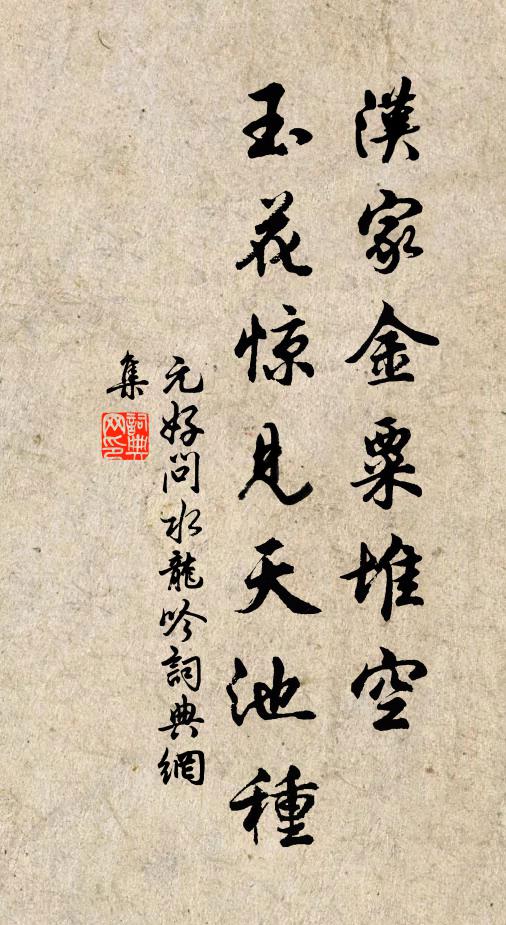 漢家金粟堆空
玉花惊見天池種
元好问水龍吟詞典網
集
詞典
网印